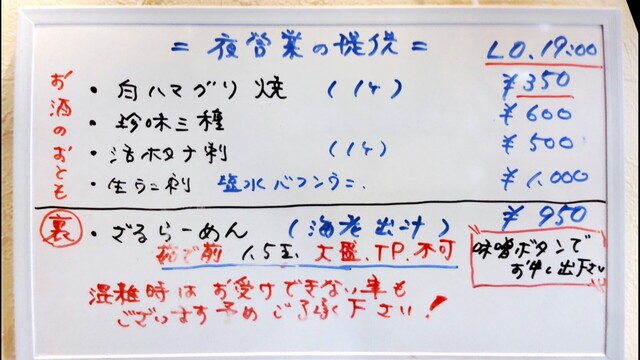 = 夜営業の提供 = L.O. 19:00
お酒のおとも
・白ハマグリ焼 (1ケ) ¥350
・珍味三種 ¥600
・活ホタテ刺 (1ケ) ¥500
・生ウニ刺 塩水バフンウニ. ¥1,000
裏 ・ざるらーめん (海老出汁) ¥950
茹で前 1.5玉 大盛.TP.不可
味噌ボタンで
お申し出下さい
混雑時はお受けできない事も
ございます予めご了承下さい!